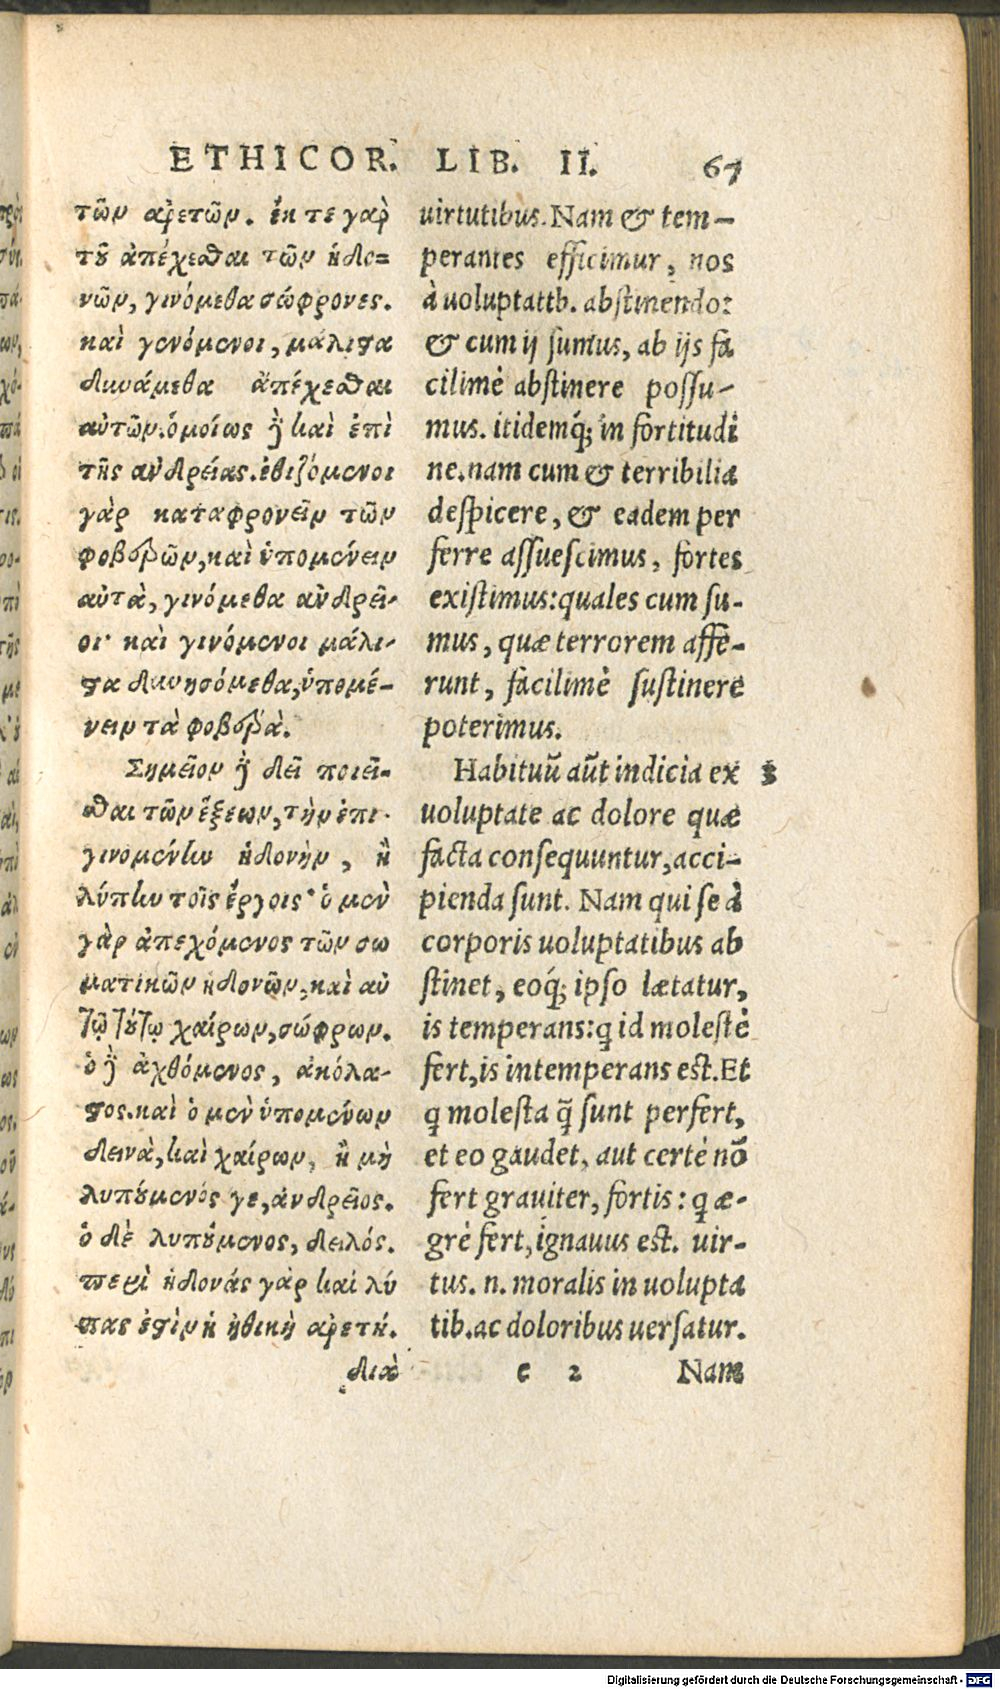 ETHICOR. LIB. II. 67
τῶν ἀρετῶν. ἔκ τε γὰρ
τοῦ ἀπέχεσθαι τῶν ἡδο=
νῶν, γινόμεθα σώφρονες.
καὶ γενόμενοι, μάλιστα
δυνάμεθα ἀπέχεσθαι
αὐτῶν. ὁμοίως δὲ καὶ ἐπὶ
τῆς ἀνδρείας. ἐθιζόμενοι
γὰρ καταφρονεῖν τῶν
φοβερῶν, καὶ ὑπομένειν
αὐτὰ, γινόμεθα ἀνδρεῖ-
οι· καὶ γινόμενοι μάλι-
στα δυνησόμεθα, ὑπομέ-
νειν τὰ φοβερὰ.
Σημεῖον δὲ δεῖ ποιεῖ-
σθαι τῶν ἕξεων, τὴν ἐπι-
γινομένην ἡδονὴν, ἢ
λύπην τοῖς ἔργοις· ὁ μὲν
γὰρ ἀπεχόμενος τῶν σω
ματικῶν ἡδονῶν, καὶ αὐ
τῷ τούτῳ χαίρων, σώφρων.
ὁ δὲ ἀχθόμενος, ἀκόλα-
στος. καὶ ὁ μὲν ὑπομένων
δεινὰ, καὶ χαίρων, ἢ μὴ
λυπούμενός γε, ἀνδρεῖος.
ὁ δὲ λυπούμενος, δειλός.
περὶ ἡδονάς γὰρ καὶ λύ
πας ἐστὶν ἡ ἠθικὴ ἀρετή.
διὰ
uirtutibus. Nam & tem-
perantes efficimur, nos
à uoluptatib. abstinendo:
& cum ij sumus, ab ijs fa
cilimè abstinere possu-
mus. itidemq́; in fortitudi
ne. nam cum & terribilia
despicere, & eadem per
ferre assuescimus, fortes
existimus: quales cum su-
mus, quæ terrorem affe-
runt, facilimè sustinere
poterimus.
Habituũ aũt indicia ex 3
uoluptate ac dolore quæ
facta consequuntur, acci-
pienda sunt. Nam qui se à
corporis uoluptatibus ab
stinet, eoq́; ipso lætatur,
is temperans: q̨ id molestè
fert, is intemperans est. Et
q̨ molesta q̃ sunt perfert,
et eo gaudet, aut certè nõ
fert grauiter, fortis: q̨ æ-
grè fert, ignauus est. uir-
tus. n. moralis in uolupta
tib. ac doloribus uersatur.
e 2 Nam
Digitalisierung gefördert durch die Deutsche Forschungsgemeinschaft - DFG